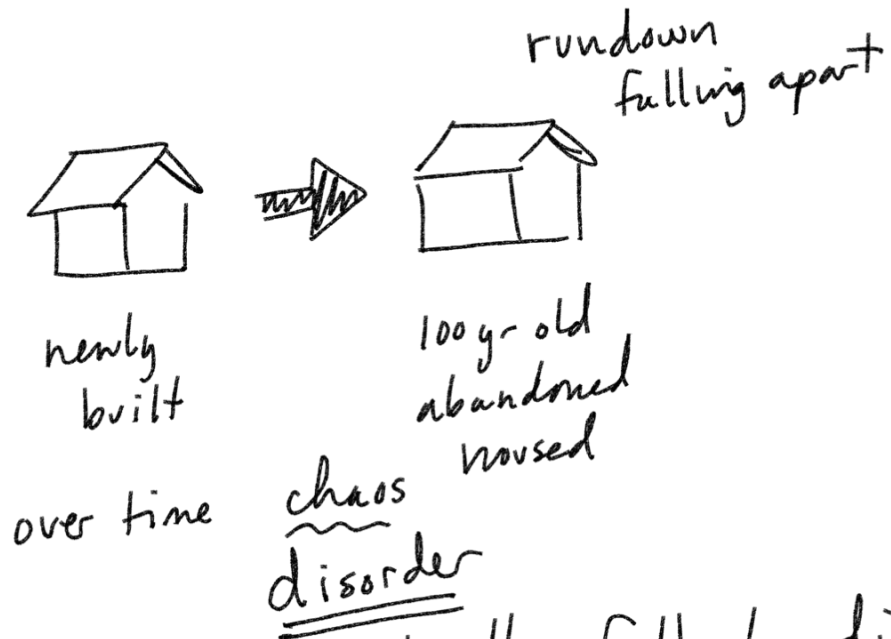 rundown
falling apart
newly
built
100yr old
abandoned
housed
over time chaos
disorder